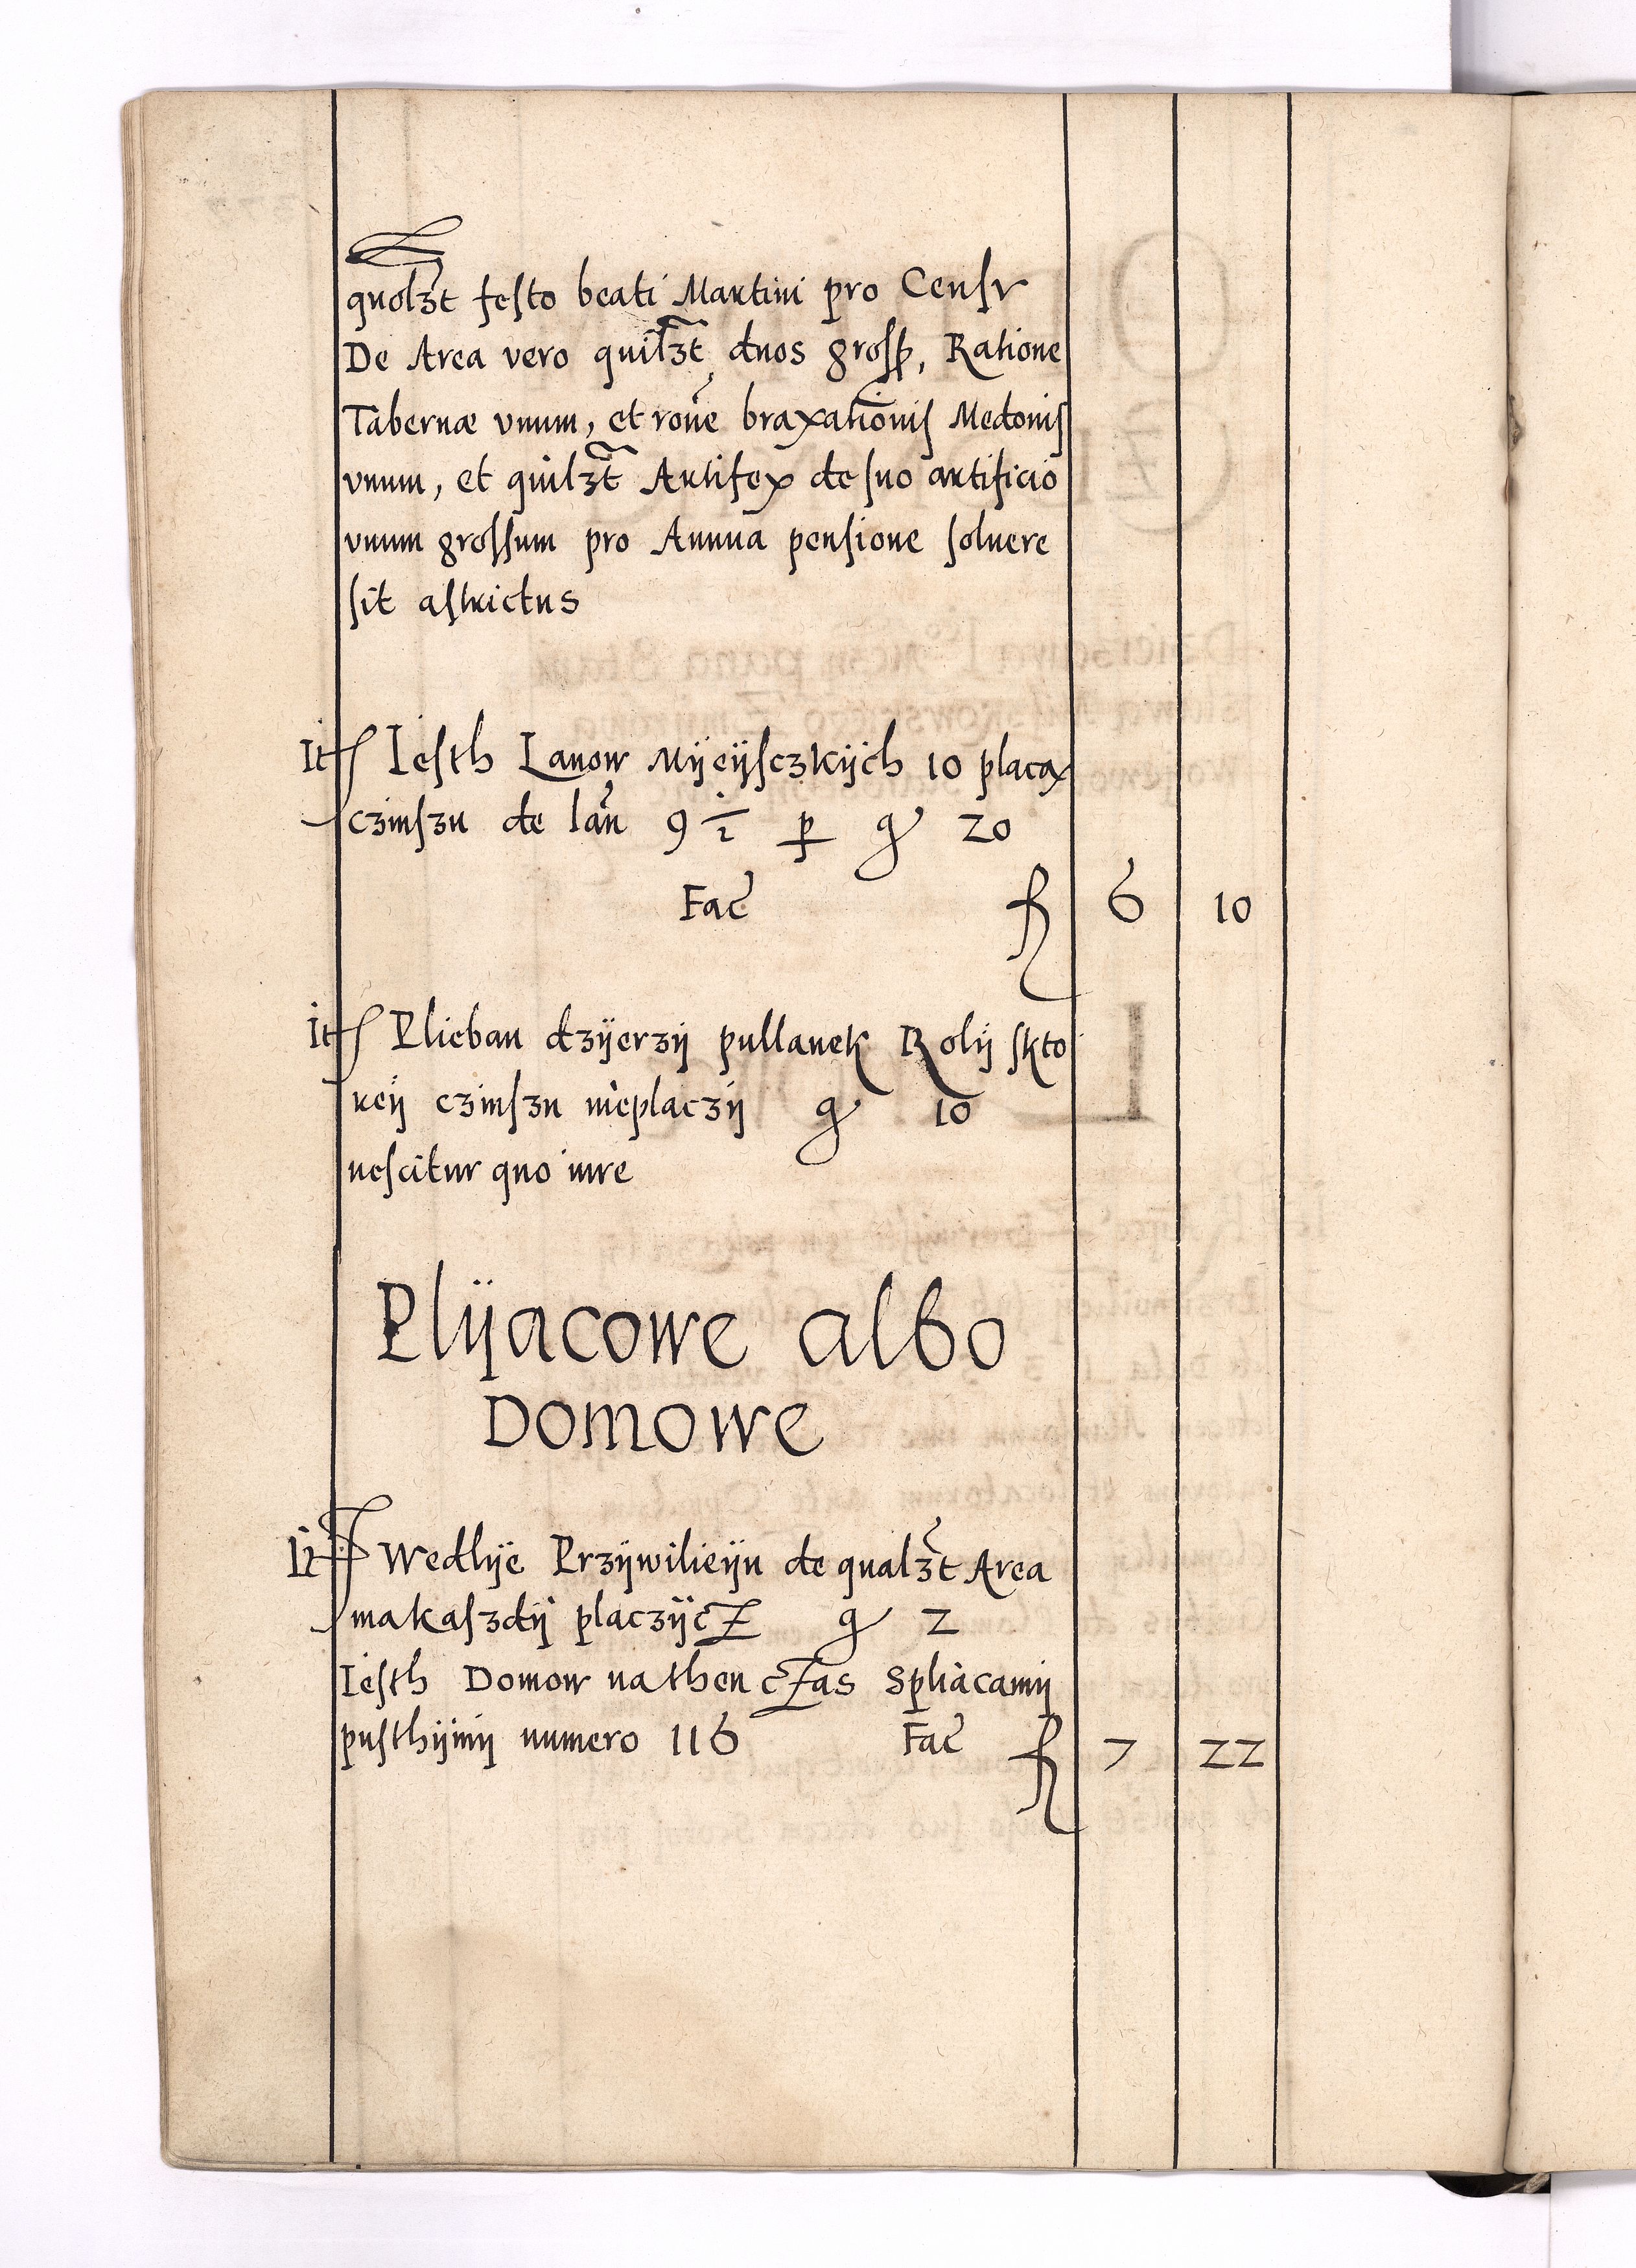 quolꝫt festo beati Martini pro Censu
De Area vero quilꝫt duos grosß, Ratione
Tabernæ vnum, et roñe braxationis Medonis
vnum, et quilꝫt Artifex de suo artificio
vnum grossum pro Annua pensione soluere
sit astrictus
It Iesth Lanow Mÿeÿsczkÿch 10 placa
czinszu de lañ 9 ½ p g 20
Fac fl 6 10
It Plieban dzÿerzÿ pullanek Rolÿ skto
reÿ czinszu nieplaczÿ g 10
nescitur quo iure
Plÿacowe albo
Domowe
It Wedlÿe Przÿwilieÿu de qualꝫt Area
makaszdÿ placzÿcz g 2
Iesth Domow nathen czas spliacamÿ
pusthÿmÿ numero 116 Fac fl 7 22